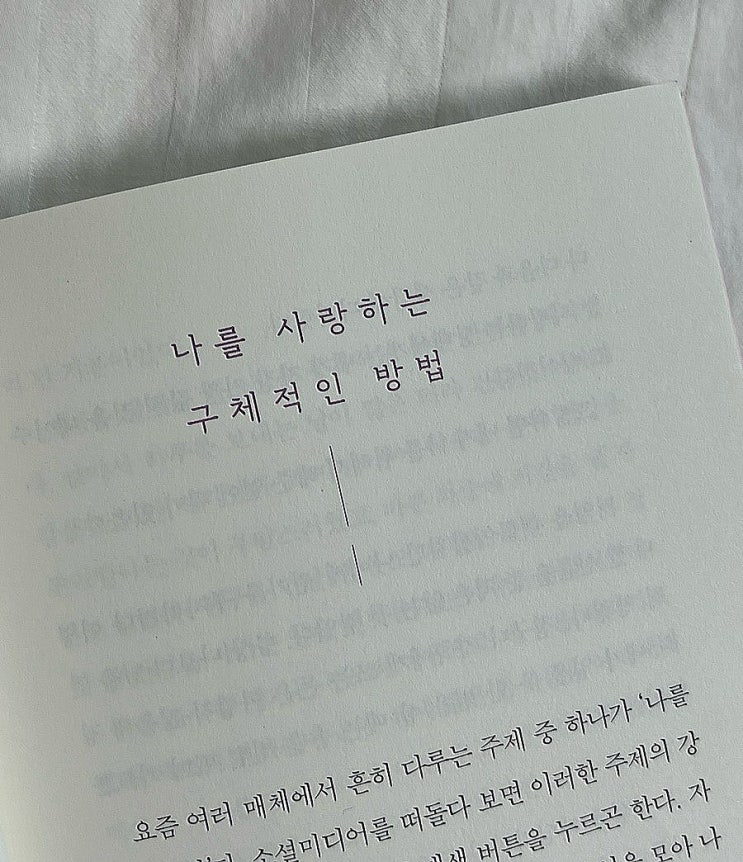 나를 사랑하는
구체적인 방법
요즘 여러 매체에서 흔히 다루는 주제 중 하나가 ‘나를
소셜미디어를 떠돌다 보면 이러한 주제의 강
버튼을 누르곤 한다. 자
모아 나